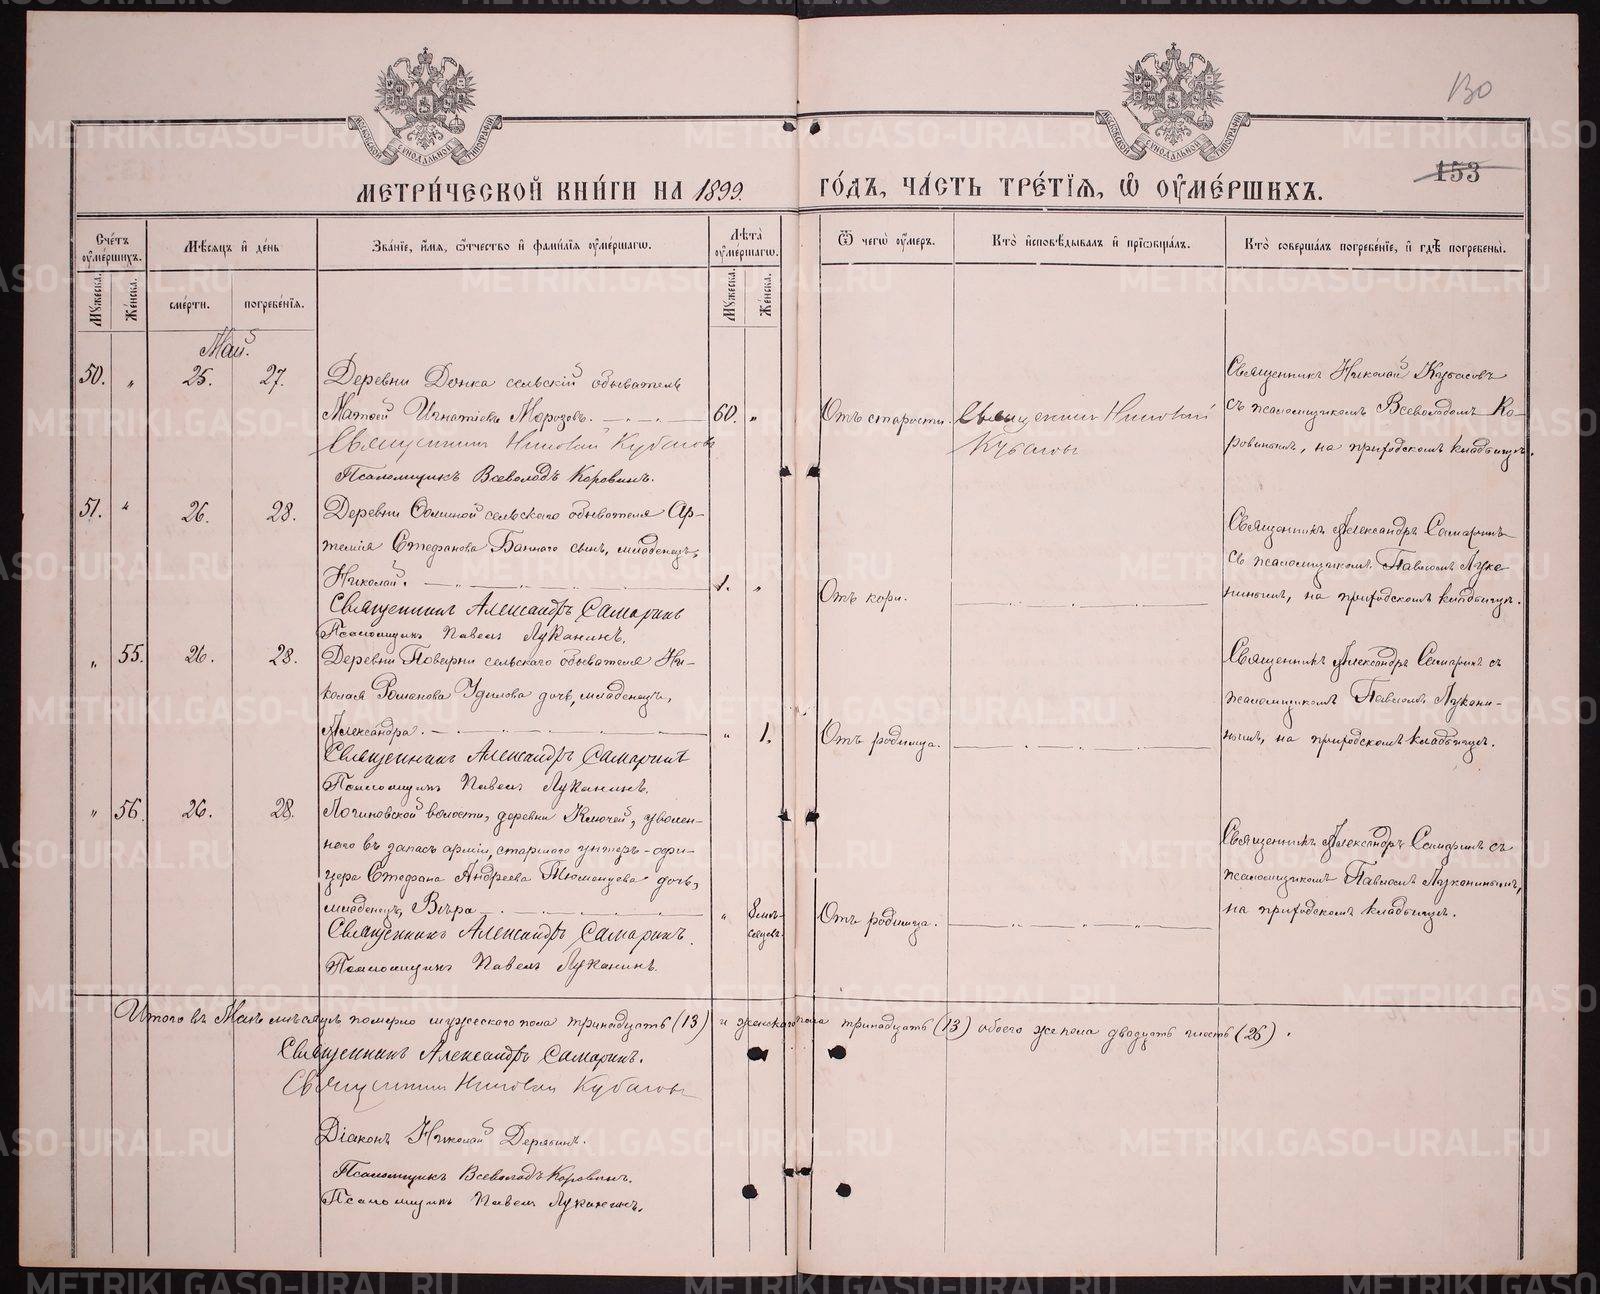 130
153
МЕТРИЧЕСКОЙ КНИГИ НА 1899.
ГОДЪ, ЧАСТЬ ТРЕТІЯ, Ѡ ОУМЕРШИХЪ.
Счетъ оумершихъ.
Мѣсяцъ и день
Званіе, имя, ѿчество и фамилія оумершагѡ.
Лѣта оумершагѡ.
Ѿ чегѡ оумеръ.
Кто исповѣдывалъ и пріѡбщалъ.
Кто совершалъ погребеніе, и гдѣ погребены.
Мужеска.
Женска.
смерти.
погребенія.
Мужеска.
Женска.
Май.
50. „ 25. 27.
Деревни Донка сельскій обыватель
Матѳей Игнатіевъ Морозовъ. 60. „
Отъ старости.
Священник Николай
Кубасовъ
Священникъ Николай Кубасовъ
съ псаломщикомъ Всеволодомъ Ко-
ровинымъ, на приходскомъ кладбищѣ.
Священник Николай Кубасовъ
Псаломщикъ Всеволодъ Коровинъ.
51. „ 26. 28.
сельскаго обывателя Ар-
темія Стефанова Баннаго сынъ, младенецъ,
Николай. 1. „
Отъ кори.
Священникъ Александръ Самаринъ
съ псаломщикомъ Павломъ Лука-
нинымъ, на приходскомъ кладбищѣ.
Священникъ Александръ Самаринъ
Псаломщикъ Павелъ Луканинъ.
„ 55. 26. 28.
Деревни Поварни сельскаго обывателя Ни-
колая Романова Удилова дочь, младенецъ,
Александра. „ 1.
Отъ родимца.
Священникъ Александръ Самаринъ съ
псаломщикомъ Павломъ Лукани-
нымъ, на приходскомъ кладбищѣ.
Священникъ Александръ Самаринъ
Псаломщикъ Павелъ Луканинъ.
„ 56. 26. 28.
Логиновской волости, деревни Ключей, уволен-
наго въ запасъ арміи, старшаго унтеръ-офи-
цера Стефана Андреева Тюменцева дочь,
младенецъ, Вѣра „ 8 мѣ-
сяцевъ.
Отъ родимца.
Священникъ Александръ Самаринъ съ
псаломщикомъ Павломъ Луканинымъ,
на приходскомъ кладбищѣ.
Священникъ Александръ Самаринъ.
Псаломщикъ Павелъ Луканинъ.
Итого въ Маѣ мѣсяцѣ померло мужескаго пола тринадцать (13) и женскаго пола тринадцать (13) обоего же пола двадцать шесть (26).
Священникъ Александръ Самаринъ.
Священник Николай Кубасовъ
Діаконъ Николай Дерябинъ.
Псаломщикъ Всеволодъ Коровинъ.
Псаломщикъ Павелъ Луканинъ.
METRIKI.GASO-URAL.RU